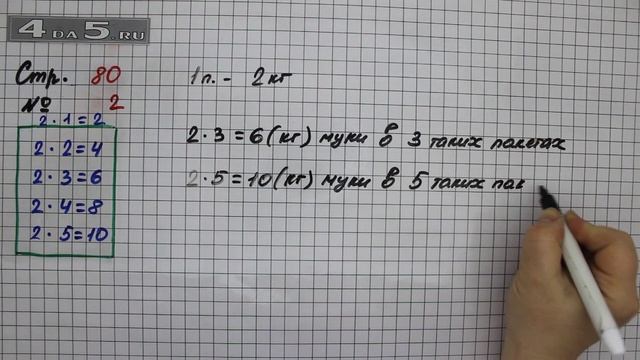 4DA5.RU
Стр. 80
№ 2
2·1=2
2·2=4
2·3=6
2·4=8
2·5=10
1 п. - 2 кг
2·3=6(кг) муки в 3 таких пакетах
2·5=10(кг) муки в 5 таких пак